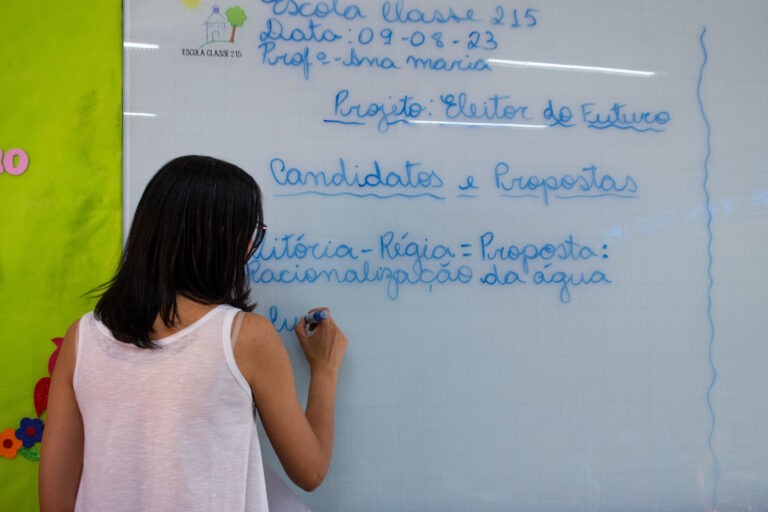 Escola Classe 215
Data: 09-08-23
ESCOLA CLASSE 215
Profª-Ana maria
Projeto: Eleitor do Futuro
Candidatos e Propostas
itória-Régia = Proposta:
Racionalização da água
Lu